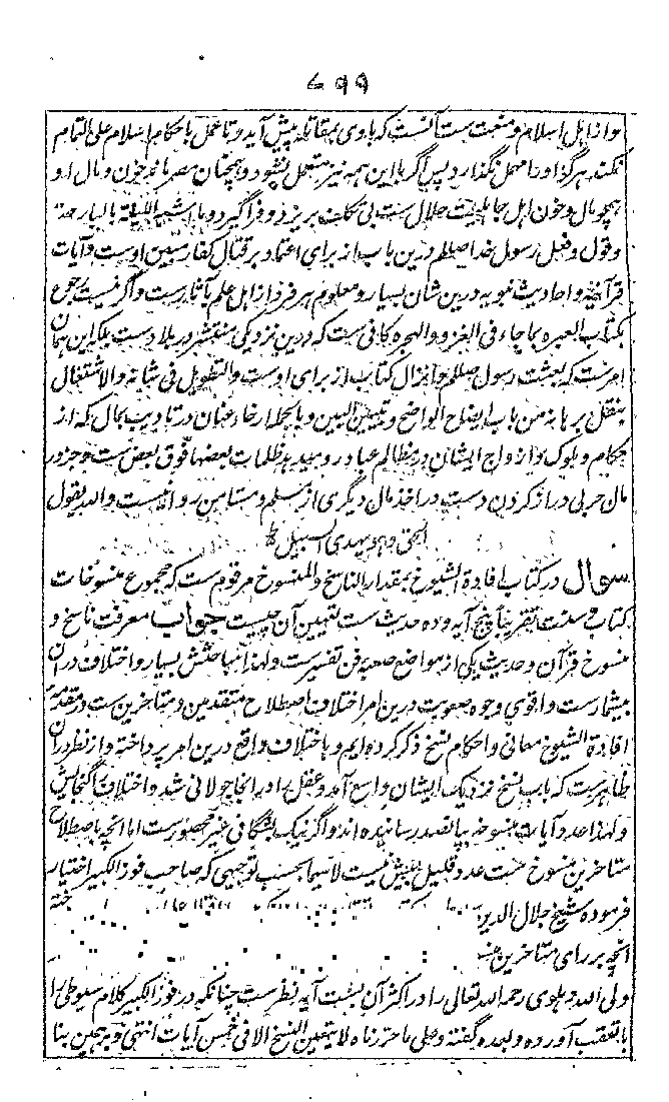 ۶۹۹
و از اهل اسلام و منعت ست آنست که باوی بمقابله پیش آید و تا عمل باحکام اسلام علی التمام
نکند هرگز او را مهمل نگذارد پس اگر با این همه نیز متعمل نشود و همچنان مصر ماند خون و مال او
همچو مال و خون اهل جاهلیت حلال ست بی تکلف بریزد و فراگیرد و ما اشبه اللیلة بالبارحة
و قول و فعل رسول خدا صلعم درین باب از برای اعتماد بر قتال کفار مبین اوست و آیات
قرآنیه و احادیث نبویه درین شان بسیار و معلوم هر فرد از اهل علم بآثارست و اگر نیست رجوع
بکتاب العبره بما جاء فی الغزو والهجره کافی ست که درین نزدیکی منتشر در بلادست بلکه این همان
امرست که بعثت رسول صلعم و انزال کتاب از برای اوست والتطویل فی شانه والاشتغال
بنقل برهانه من باب ایضاح الواضح و تبیین البین و بالجمله ارخاء عنان در تادیب بحال که از
حکام و ملوک و ازواج ایشان در مظالم عباد رو میدهد ظلمات بعضها فوق بعض ست و جز در
مال حربی دراز کردن دست در اخذ مال دیگری از مسلم و مستامن روا نیست والله یقول
الحق وهو یهدی السبیل
سوال در کتاب افادة الشیوخ بمقدار الناسخ والمنسوخ مرقوم ست که مجموع منسوخات
کتاب و سنت تقریباً پنج آیه و ده حدیث ست تعیین آن چیست جواب معرفت ناسخ و
منسوخ قرآن و حدیث یکی از مواضع صعبه فن تفسیرست ولهذا مباحثش بسیار و اختلاف دران
بیشمارست و اقوی وجوه صعوبت درین امر اختلاف اصطلاح متقدمین و متاخرین ست و در مقدمه
افادة الشیوخ معانی و احکام نسخ ذکر کرده ایم و باختلاف واقع درین امر پرداخته و از نظر دران
ظاهرست که باب نسخ نزدیک ایشان واسع آمد و عقل را در انجا جولانی شد و اختلاف را گنجایش
و لهذا عدد آیات منسوخه بپانصد رسانیده اند و اگر نیک بشگافی غیر محصورست اما انچه باصطلاح
متاخرین منسوخ ست عدد قلیل بیش نیست لاسیما بحسب توجیهی که صاحب فوز الکبیر اختیار
فرموده شیخ جلال الدین
انچه بر رای متاخرین
ولی الله دهلوی رحمه الله تعالی را در اکثر آن بیست آیه نظرست چنانکه در فوز الکبیر کلام سیوطی را
بالتعقب آورده و بعده گفته و علی ما حررناه لا یتعین النسخ الا فی خمس آیات انتهی و برهمین بنا